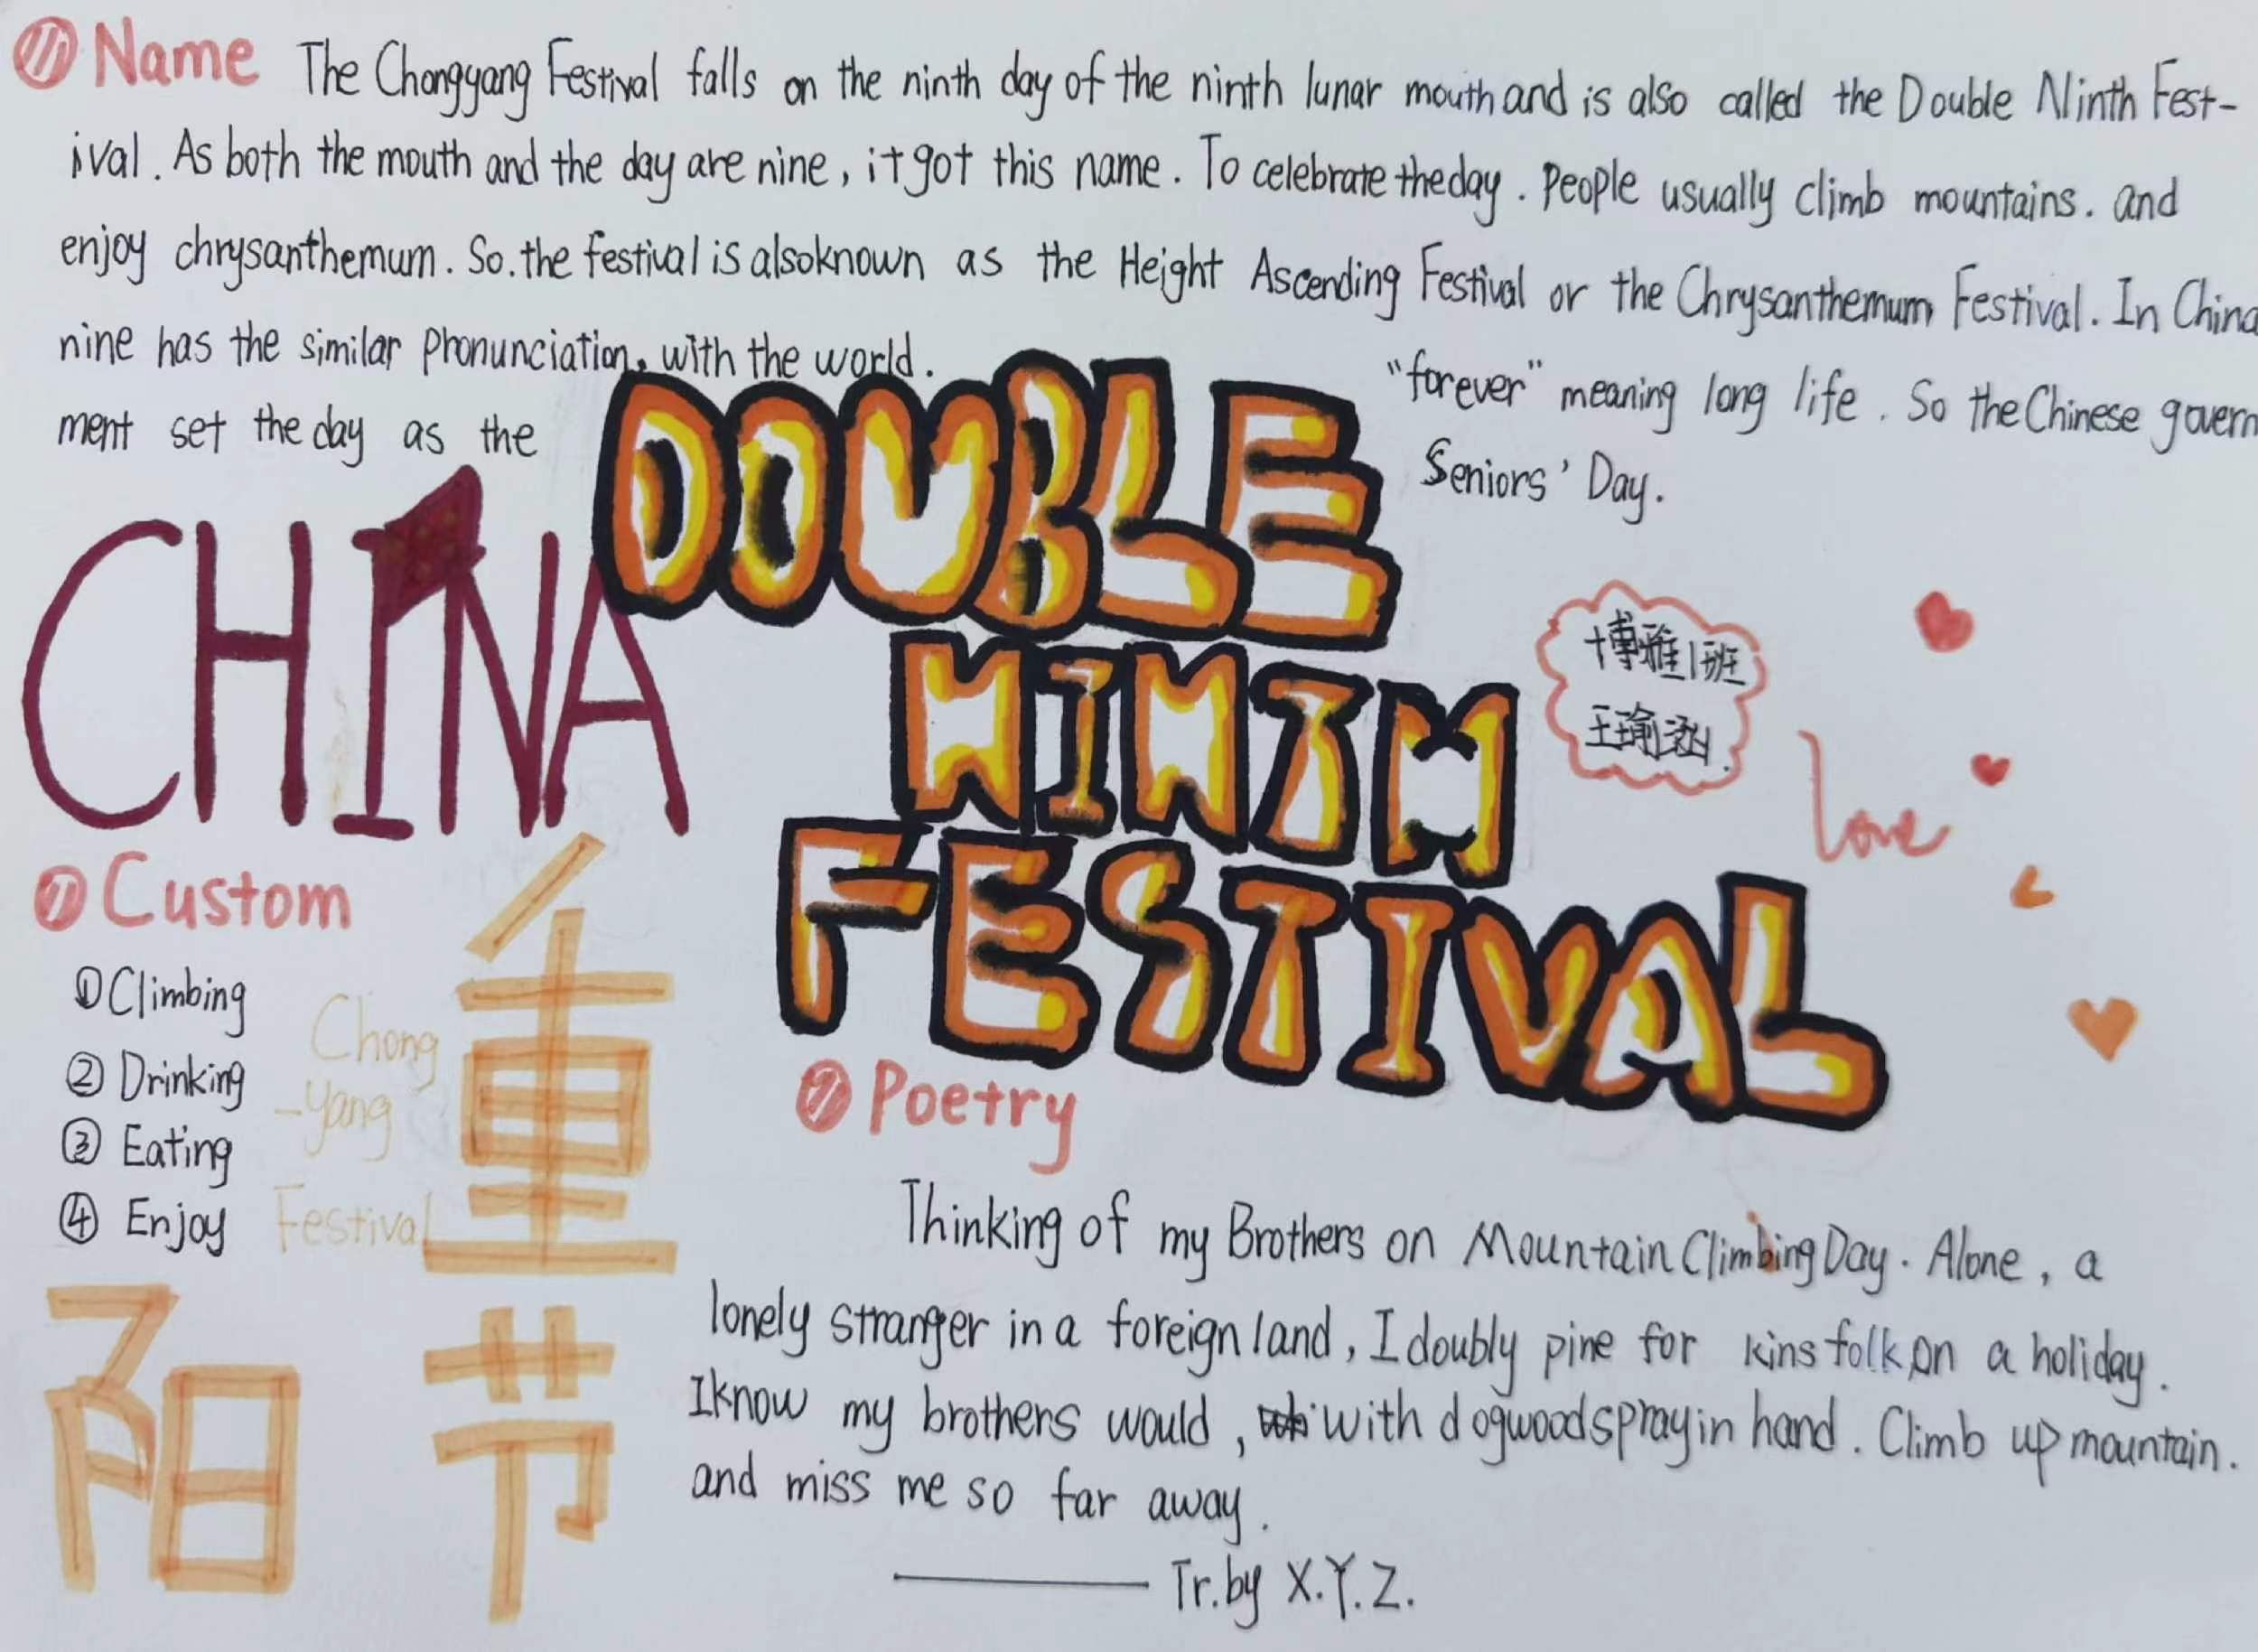 Name The Chongyang Festival falls on the ninth day of the ninth lunar mouth and is also called the Double Ninth Fest-
ival. As both the mouth and the day are nine, it got this name. To celebrate the day. People usually climb mountains. and
enjoy chrysanthemum. So. the festival is also known as the Height Ascending Festival or the Chrysanthemum Festival. In China
nine has the similar Phonunciation, with the world. "forever" meaning long life. So the Chinese govern
ment set the day as the Seniors' Day.
CHINA
DOUBLE
NINTH
FESTIVAL
博雅1班
王瑜
Love
Custom
①Climbing
② Drinking
③ Eating
④ Enjoy
Chong
-yang
Festival
重
阳 节
Poetry
Thinking of my Brothers on Mountain Climbing Day. Alone, a
lonely stranger in a foreign land, I doubly pine for kins folk on a holiday.
I know my brothers would, with dogwood spray in hand. Climb up mountain.
and miss me so far away.
—— Tr. by X.Y.Z.